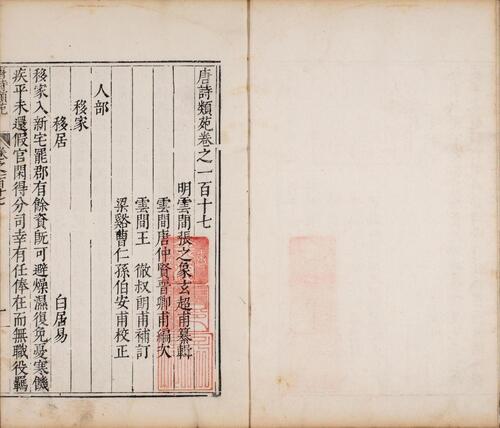 唐詩類苑卷之一百十七
明雲間張之象玄超甫纂輯
雲間唐仲賢晉卿甫編次
雲間王徹叔朗甫補訂
梁谿曹仁孫伯安甫校正
人部
移家
移居 白居易
移家入新宅罷郡有餘資既可避燥濕復免憂寒饑
疾平未還假官閑得分司幸有任俸在而無職役羈
唐詩類苑